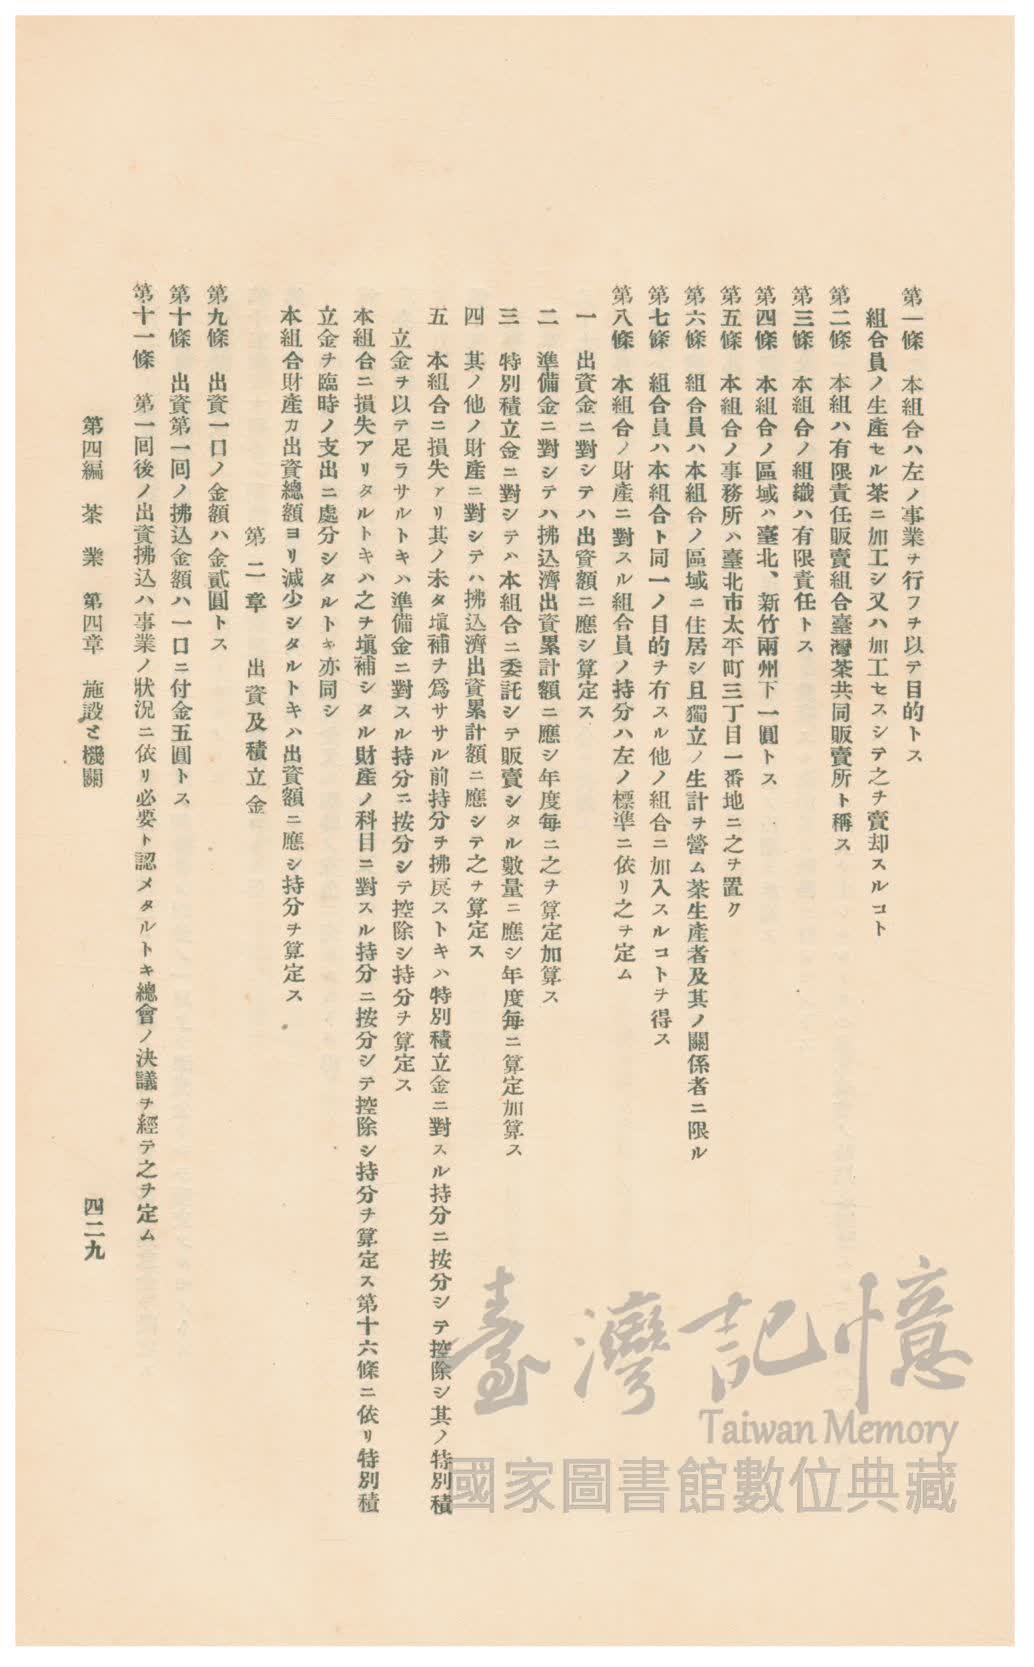 第一條　本組合ハ左ノ事業ヲ行フヲ以テ目的トス
組合員ノ生產セル茶ニ加工シ又ハ加工セスシテ之ヲ賣却スルコト
第二條　本組ハ有限責任販賣組合臺灣茶共同販賣所ト稱ス
第三條　本組合ノ組織ハ有限責任トス
第四條　本組合ノ區域ハ臺北、新竹兩州下一圓トス
第五條　本組合ノ事務所ハ臺北市太平町三丁目一番地ニ之ヲ置ク
第六條　組合員ハ本組合ノ區域ニ住居シ且獨立ノ生計ヲ營ム茶生產者及其ノ關係者ニ限ル
第七條　組合員ハ本組合ト同一ノ目的ヲ有スル他ノ組合ニ加入スルコトヲ得ス
第八條　本組合ノ財產ニ對スル組合員ノ持分ハ左ノ標準ニ依リ之ヲ定ム
一　出資金ニ對シテハ出資額ニ應シ算定ス
二　準備金ニ對シテハ拂込濟出資累計額ニ應シ年度每ニ之ヲ算定加算ス
三　特別積立金ニ對シテハ本組合ニ委託シテ販賣シタル數量ニ應シ年度每ニ算定加算ス
四　其ノ他ノ財產ニ對シテハ拂込濟出資累計額ニ應シテ之ヲ算定ス
五　本組合ニ損失アリ其ノ未タ塡補ヲ爲ササル前持分ヲ拂戾ストキハ特別積立金ニ對スル持分ニ按分シテ控除シ其ノ特別積
立金ヲ以テ足ラサルトキハ準備金ニ對スル持分ニ按分シテ控除シ持分ヲ算定ス
本組合ニ損失アリタルトキハ之ヲ塡補シタル財產ノ科目ニ對スル持分ニ按分シテ控除シ持分ヲ算定ス第十六條ニ依リ特別積
立金ヲ臨時ノ支出ニ處分シタルトキ亦同シ
本組合財產カ出資總額ヨリ減少シタルトキハ出資額ニ應シ持分ヲ算定ス
第二章　出資及積立金
第九條　出資一口ノ金額ハ金貳圓トス
第十條　出資第一回ノ拂込金額ハ一口ニ付金五圓トス
第十一條　第一回後ノ出資拂込ハ事業ノ狀況ニ依リ必要ト認メタルトキ總會ノ決議ヲ經テ之ヲ定ム
第四編　茶業　第四章　施設と機關
四二九
臺灣記憶
Taiwan Memory
國家圖書館數位典藏